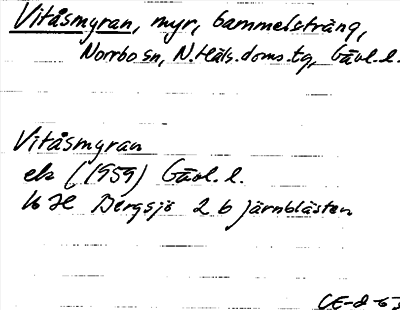 Vitåsmyran, myr, Gammelsträng,
Norrbo sn, N. Häls. doms. tg, Gävl. l.
Vitåsmyran
ek (1959) Gävl. l.
Bergsjö 2 b järnblästen